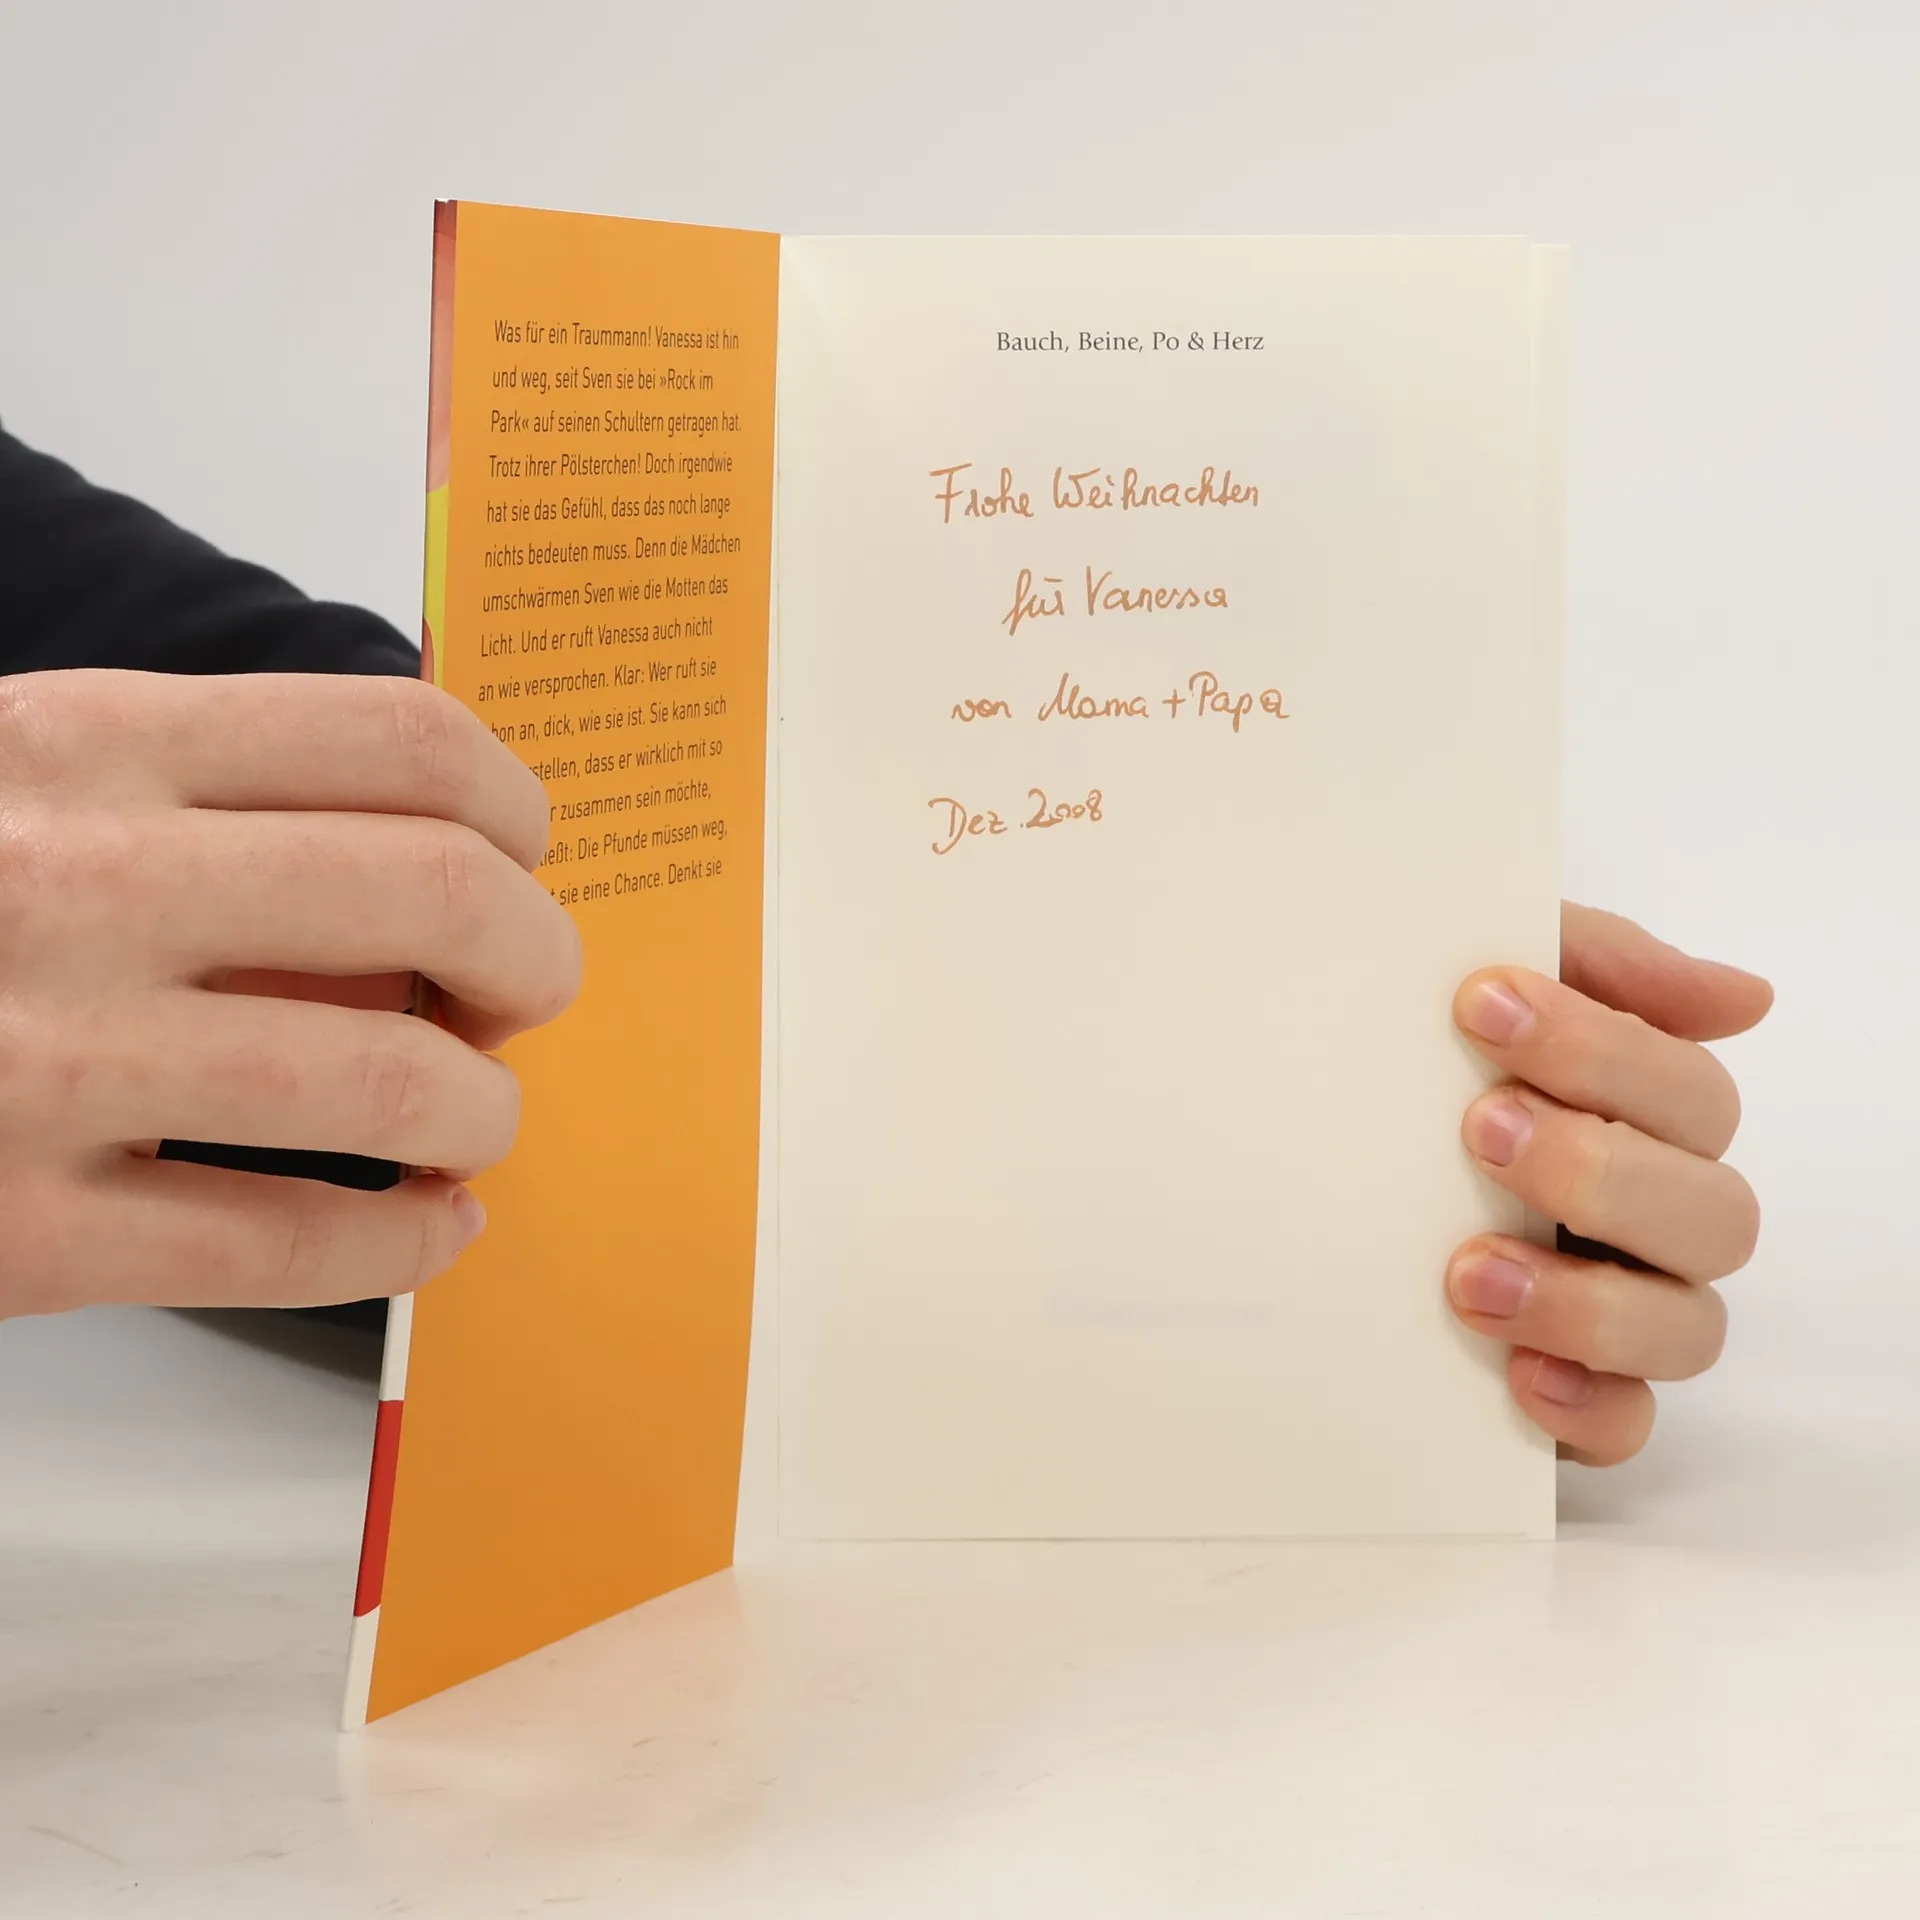 Was für ein Traummann! Vanessa ist hin
und weg, seit Sven sie bei »Rock im
Park« auf seinen Schultern getragen hat.
Trotz ihrer Pölsterchen! Doch irgendwie
hat sie das Gefühl, dass das noch lange
nichts bedeuten muss. Denn die Mädchen
umschwärmen Sven wie die Motten das
Licht. Und er ruft Vanessa auch nicht
an wie versprochen. Klar: Wer ruft sie
an, dick, wie sie ist. Sie kann sich
dass er wirklich mit so
zusammen sein möchte,
Die Pfunde müssen weg,
sie eine Chance. Denkt sie
Bauch, Beine, Po & Herz
Frohe Weihnachten
für Vanessa
von Mama + Papa
Dez. 2008